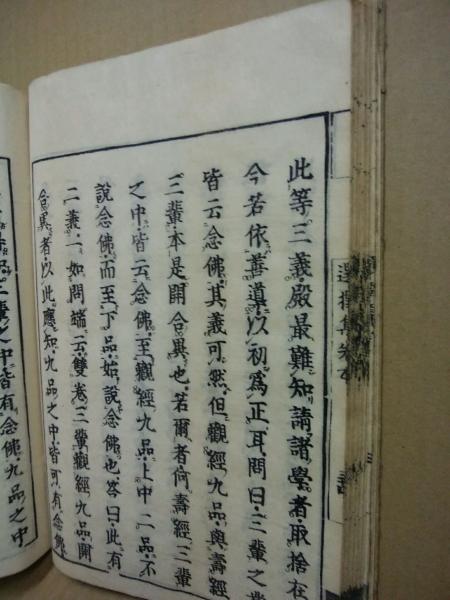 選擇集卷
此等三義殿最難知請諸學者取捨在
今若依善導以初爲正耳問曰三輩之業
皆云念佛其義可然但觀經九品與壽經
三輩本是開合異也若爾者何壽經三輩
之中皆云念佛至觀經九品上中二品不
說念佛而至下品始說念佛也答曰此有
二義一如問端云雙卷三輩觀經九品開
合異者以此應知九品之中皆可有念佛
三輩之中皆有念佛九品之中